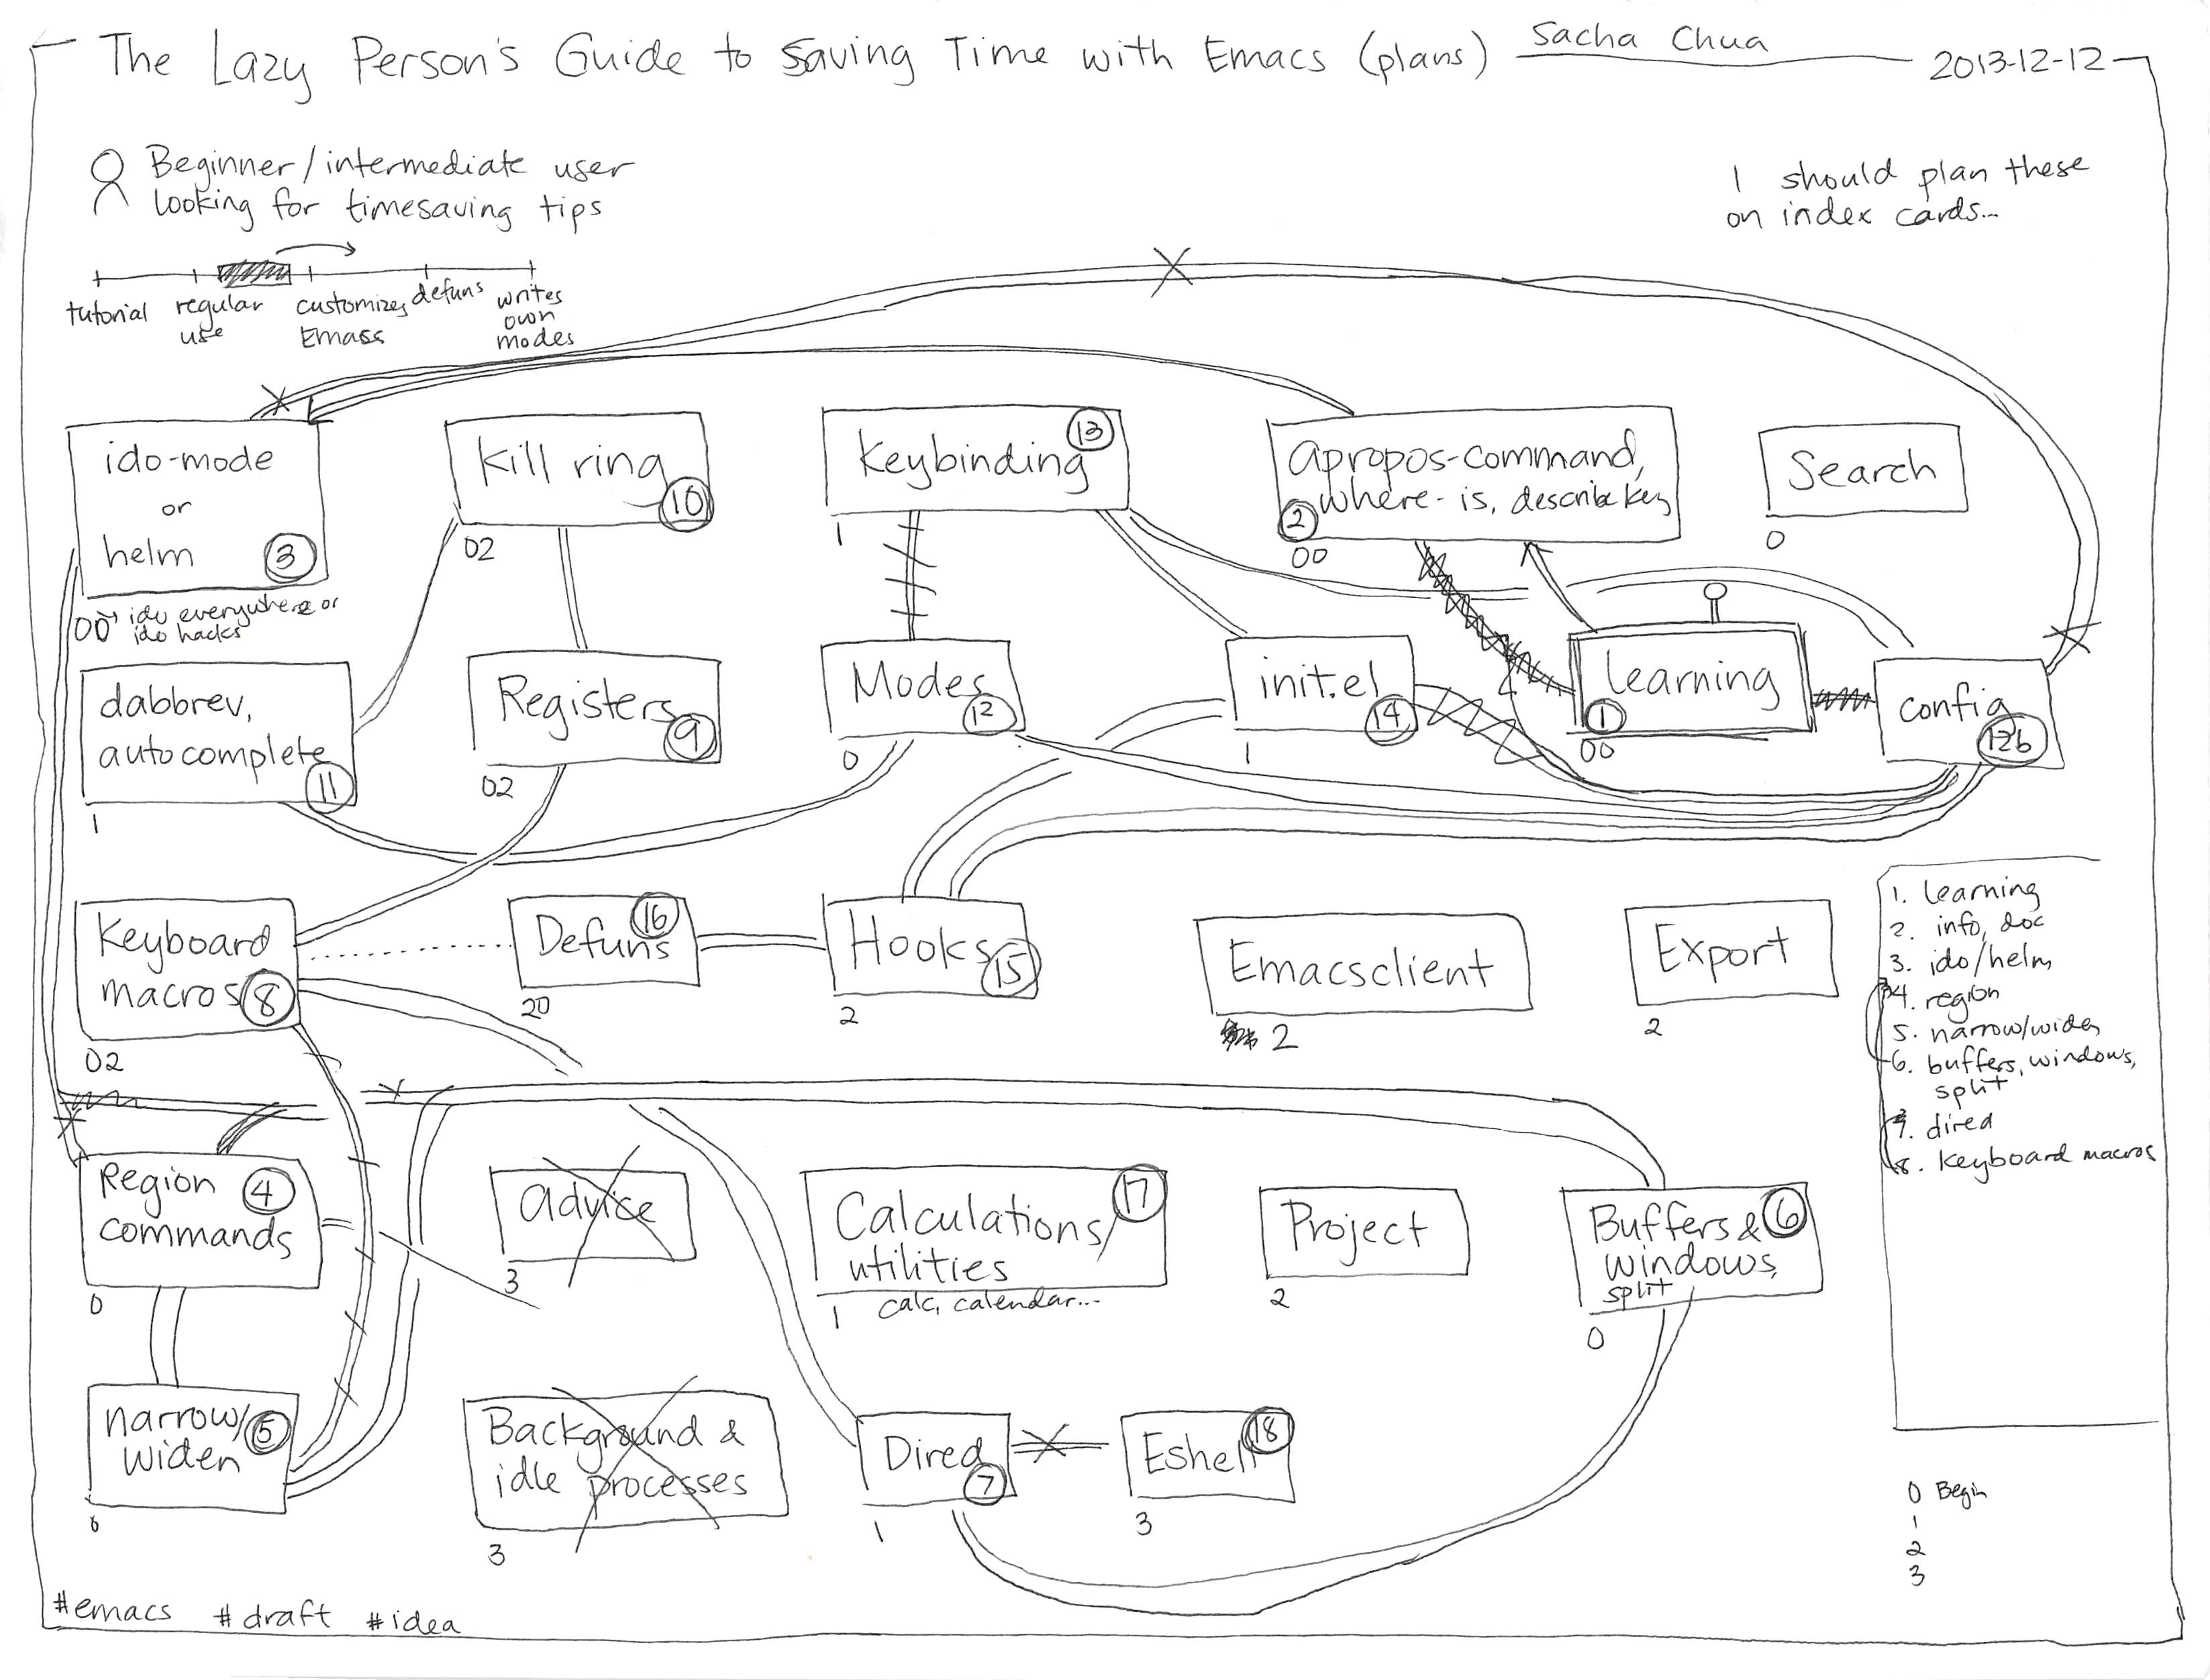 The Lazy Person's Guide to Saving Time with Emacs (plans)
Sacha Chua
2013-12-12
Beginner/intermediate user
looking for timesaving tips
I should plan these
on index cards...
tutorial
regular
use
customizes
Emacs
defuns
writes
own
modes
ido-mode
or
helm
3
00
ido everywhere or
ido hacks
kill ring
10
02
Keybinding
13
1
apropos-command,
where-is, describe key
2
00
Search
0
dabbrev,
autocomplete
11
1
Registers
9
02
Modes
12
0
init.el
14
1
Learning
1
00
config
12b
Keyboard
macros
8
02
Defuns
16
20
Hooks
15
2
Emacsclient
2
Export
2
1. learning
2. info, doc
3. ido/helm
4. region
5. narrow/widen
6. buffers, windows,
split
7. dired
8. keyboard macros
Region
commands
4
0
advice
3
Calculations/
utilities
17
1
calc, calendar...
Project
2
Buffers &
windows,
split
6
0
narrow/
widen
5
0
Background &
idle processes
3
Dired
7
1
Eshell
18
3
0 Begin
1
2
3
#emacs #draft #idea